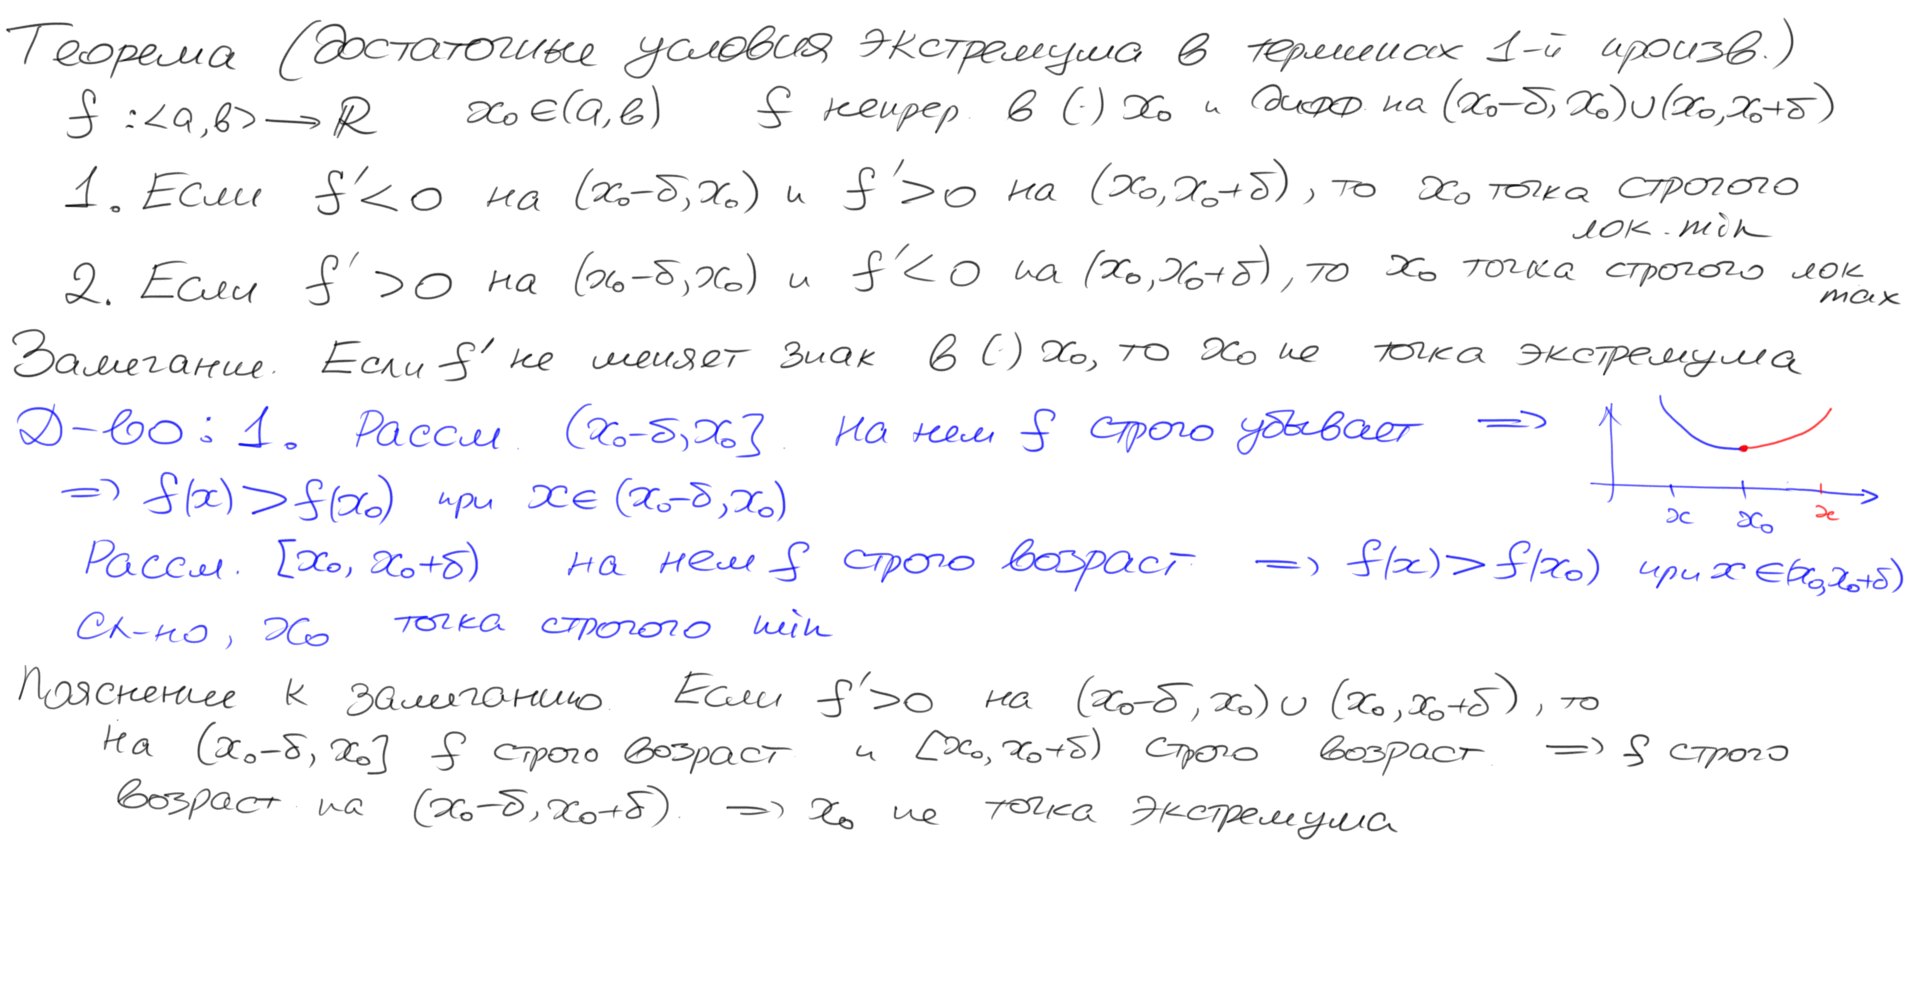 Теорема (достаточные условия экстремума в терминах 1-й произв.)
f : <a, b> → ℝ x₀ ∈ (a, b) f непрер. в (·) x₀ и дифф на (x₀-δ, x₀)∪(x₀, x₀+δ)
1. Если f' < 0 на (x₀-δ, x₀) и f' > 0 на (x₀, x₀+δ), то x₀ точка строгого
лок. min
2. Если f' > 0 на (x₀-δ, x₀) и f' < 0 на (x₀, x₀+δ), то x₀ точка строгого лок
max
Замечание. Если f' не меняет знак в (·) x₀, то x₀ не точка экстремума
Д-во: 1. Рассм. (x₀-δ, x₀]. На нем f строго убывает =>
=> f(x) > f(x₀) при x ∈ (x₀-δ, x₀)
x x₀ x
Рассм. [x₀, x₀+δ) на нем f строго возраст. => f(x) > f(x₀) при x ∈ (x₀, x₀+δ)
Сл-но, x₀ точка строгого min
Пояснение к замечанию. Если f' > 0 на (x₀-δ, x₀) ∪ (x₀, x₀+δ), то
на (x₀-δ, x₀] f строго возраст. и [x₀, x₀+δ) строго возраст. => f строго
возраст на (x₀-δ, x₀+δ). => x₀ не точка экстремума